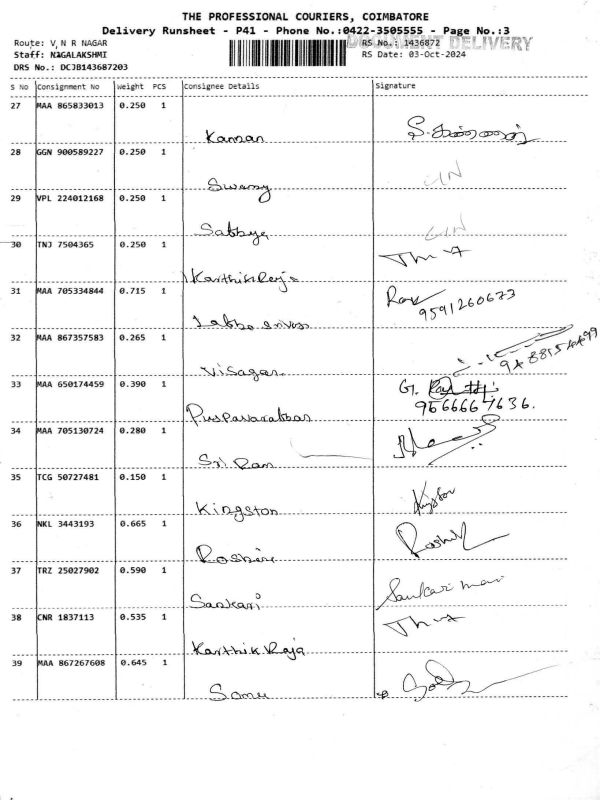 THE PROFESSIONAL COURIERS, COIMBATORE
Delivery Runsheet - P41 - Phone No.:0422-3505555 - Page No.:3
DOCUMENT DELIVERY
Route: V N R NAGAR
RS No.: 1436872
Staff: NAGALAKSHMI
RS Date: 03-Oct-2024
DRS No.: DCJB143687203
S No Consignment No Weight PCS Consignee Details Signature
27 MAA 865833013 0.250 1
Kannan
28 GGN 900589227 0.250 1
Swamy
29 VPL 224012168 0.250 1
Sathya
30 TNJ 7504365 0.250 1
Karthik Raja
31 MAA 705334844 0.715 1
9591260673
32 MAA 867357583 0.265 1
Visagan
33 MAA 650174459 0.390 1
9566667636.
34 MAA 705130724 0.280 1
Sri Ram
35 TCG 50727481 0.150 1
Kingston
36 NKL 3443193 0.665 1
37 TRZ 25027902 0.590 1
Sankari
38 CNR 1837113 0.535 1
Karthik Raja
39 MAA 867267608 0.645 1
Somu